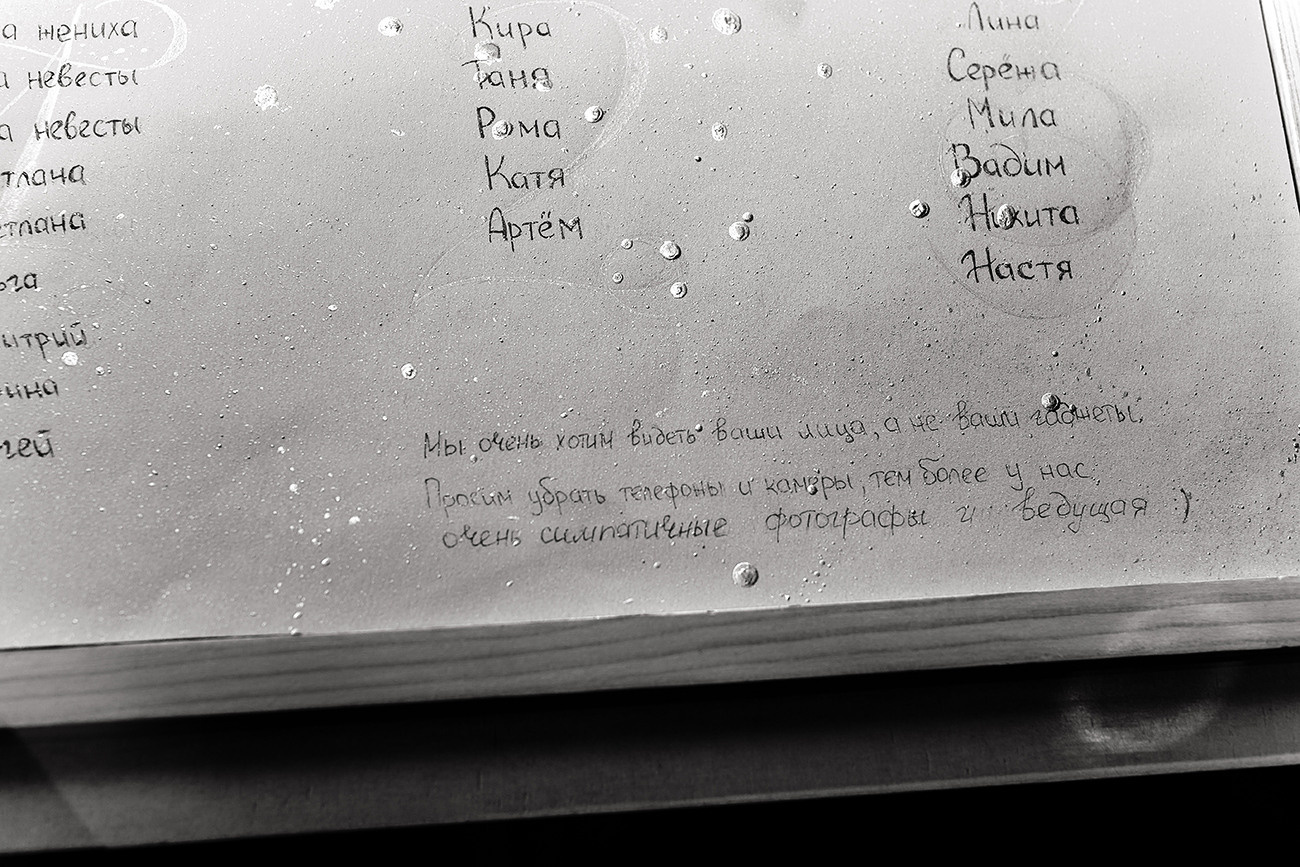 а жениха
а невесты
а невесты
тлана
етлана
ьга
итрий
ина
гей
Кира
Таня
Рома
Катя
Артём
Лина
Серёжа
Мила
Вадим
Никита
Настя
Мы очень хотим видеть ваши лица, а не ваши гаджеты.
Просим убрать телефоны и камеры, тем более у нас
очень симпатичные фотографы и ведущая )